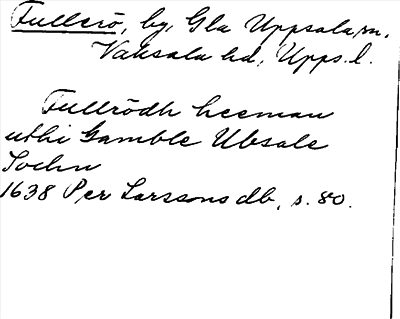 Fullerö, by, Gla Uppsala sn,
Vaksala hd, Upps. l.
Fullrödh heeman
uthi Gamble Ubsale
Sochn
1638 Per Larssons db, s. 80.